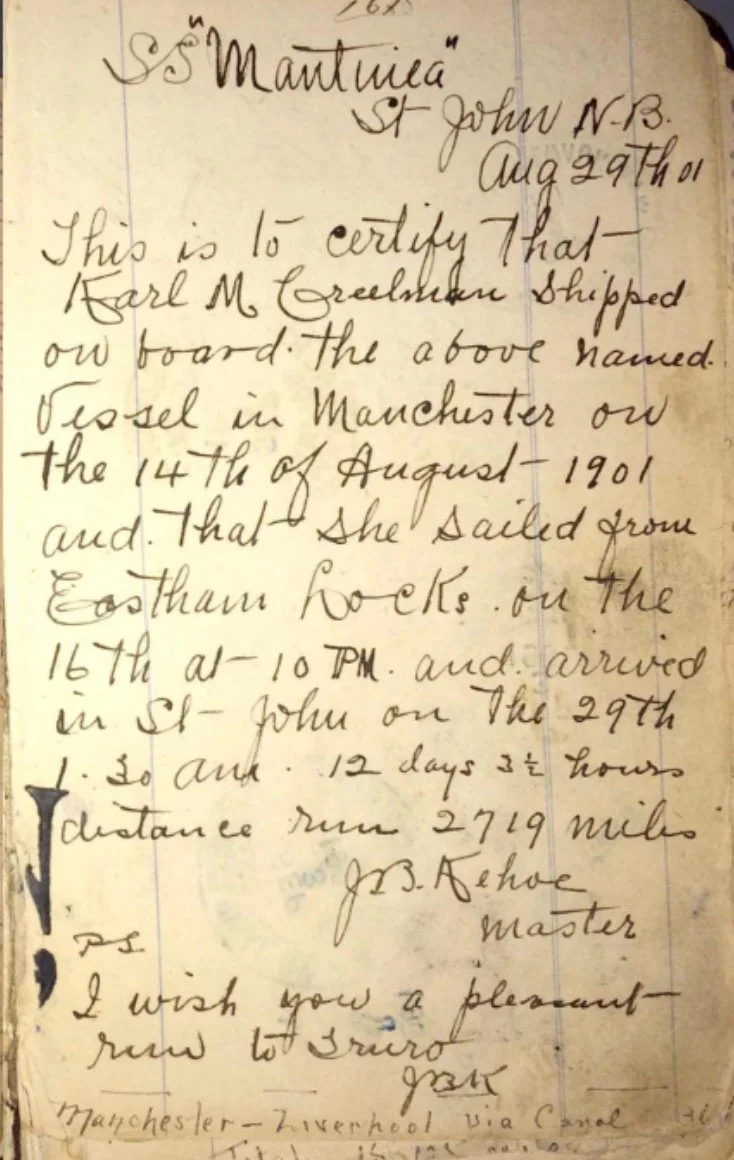 SS "Mantinea"
St John N.B.
Aug 29Th 01
This is to certify That
Karl M. Creelman Shipped
on board. the above named.
Vessel in Manchester on
the 14Th of August 1901
and. that she sailed from
Eastham Locks. on the
16Th at 10 PM. and. arrived
in St John on The 29th
1.30 am. 12 days 3½ hours
distance run 2719 miles
J.B. Kehoe
Master
PS
I wish you a pleasant
run to Truro
JBK
Manchester - Liverpool via Canal 36
Total